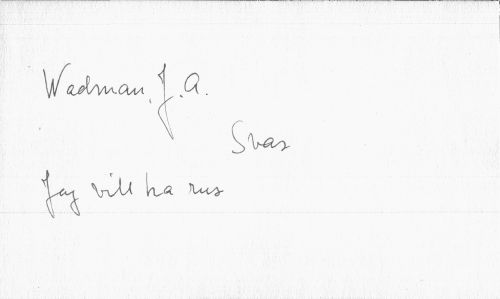 Wadman, J. A.
Svar
Jag vill ha rus